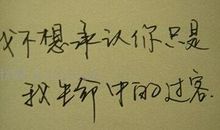 我不想承认你只是
我生命中的过客.